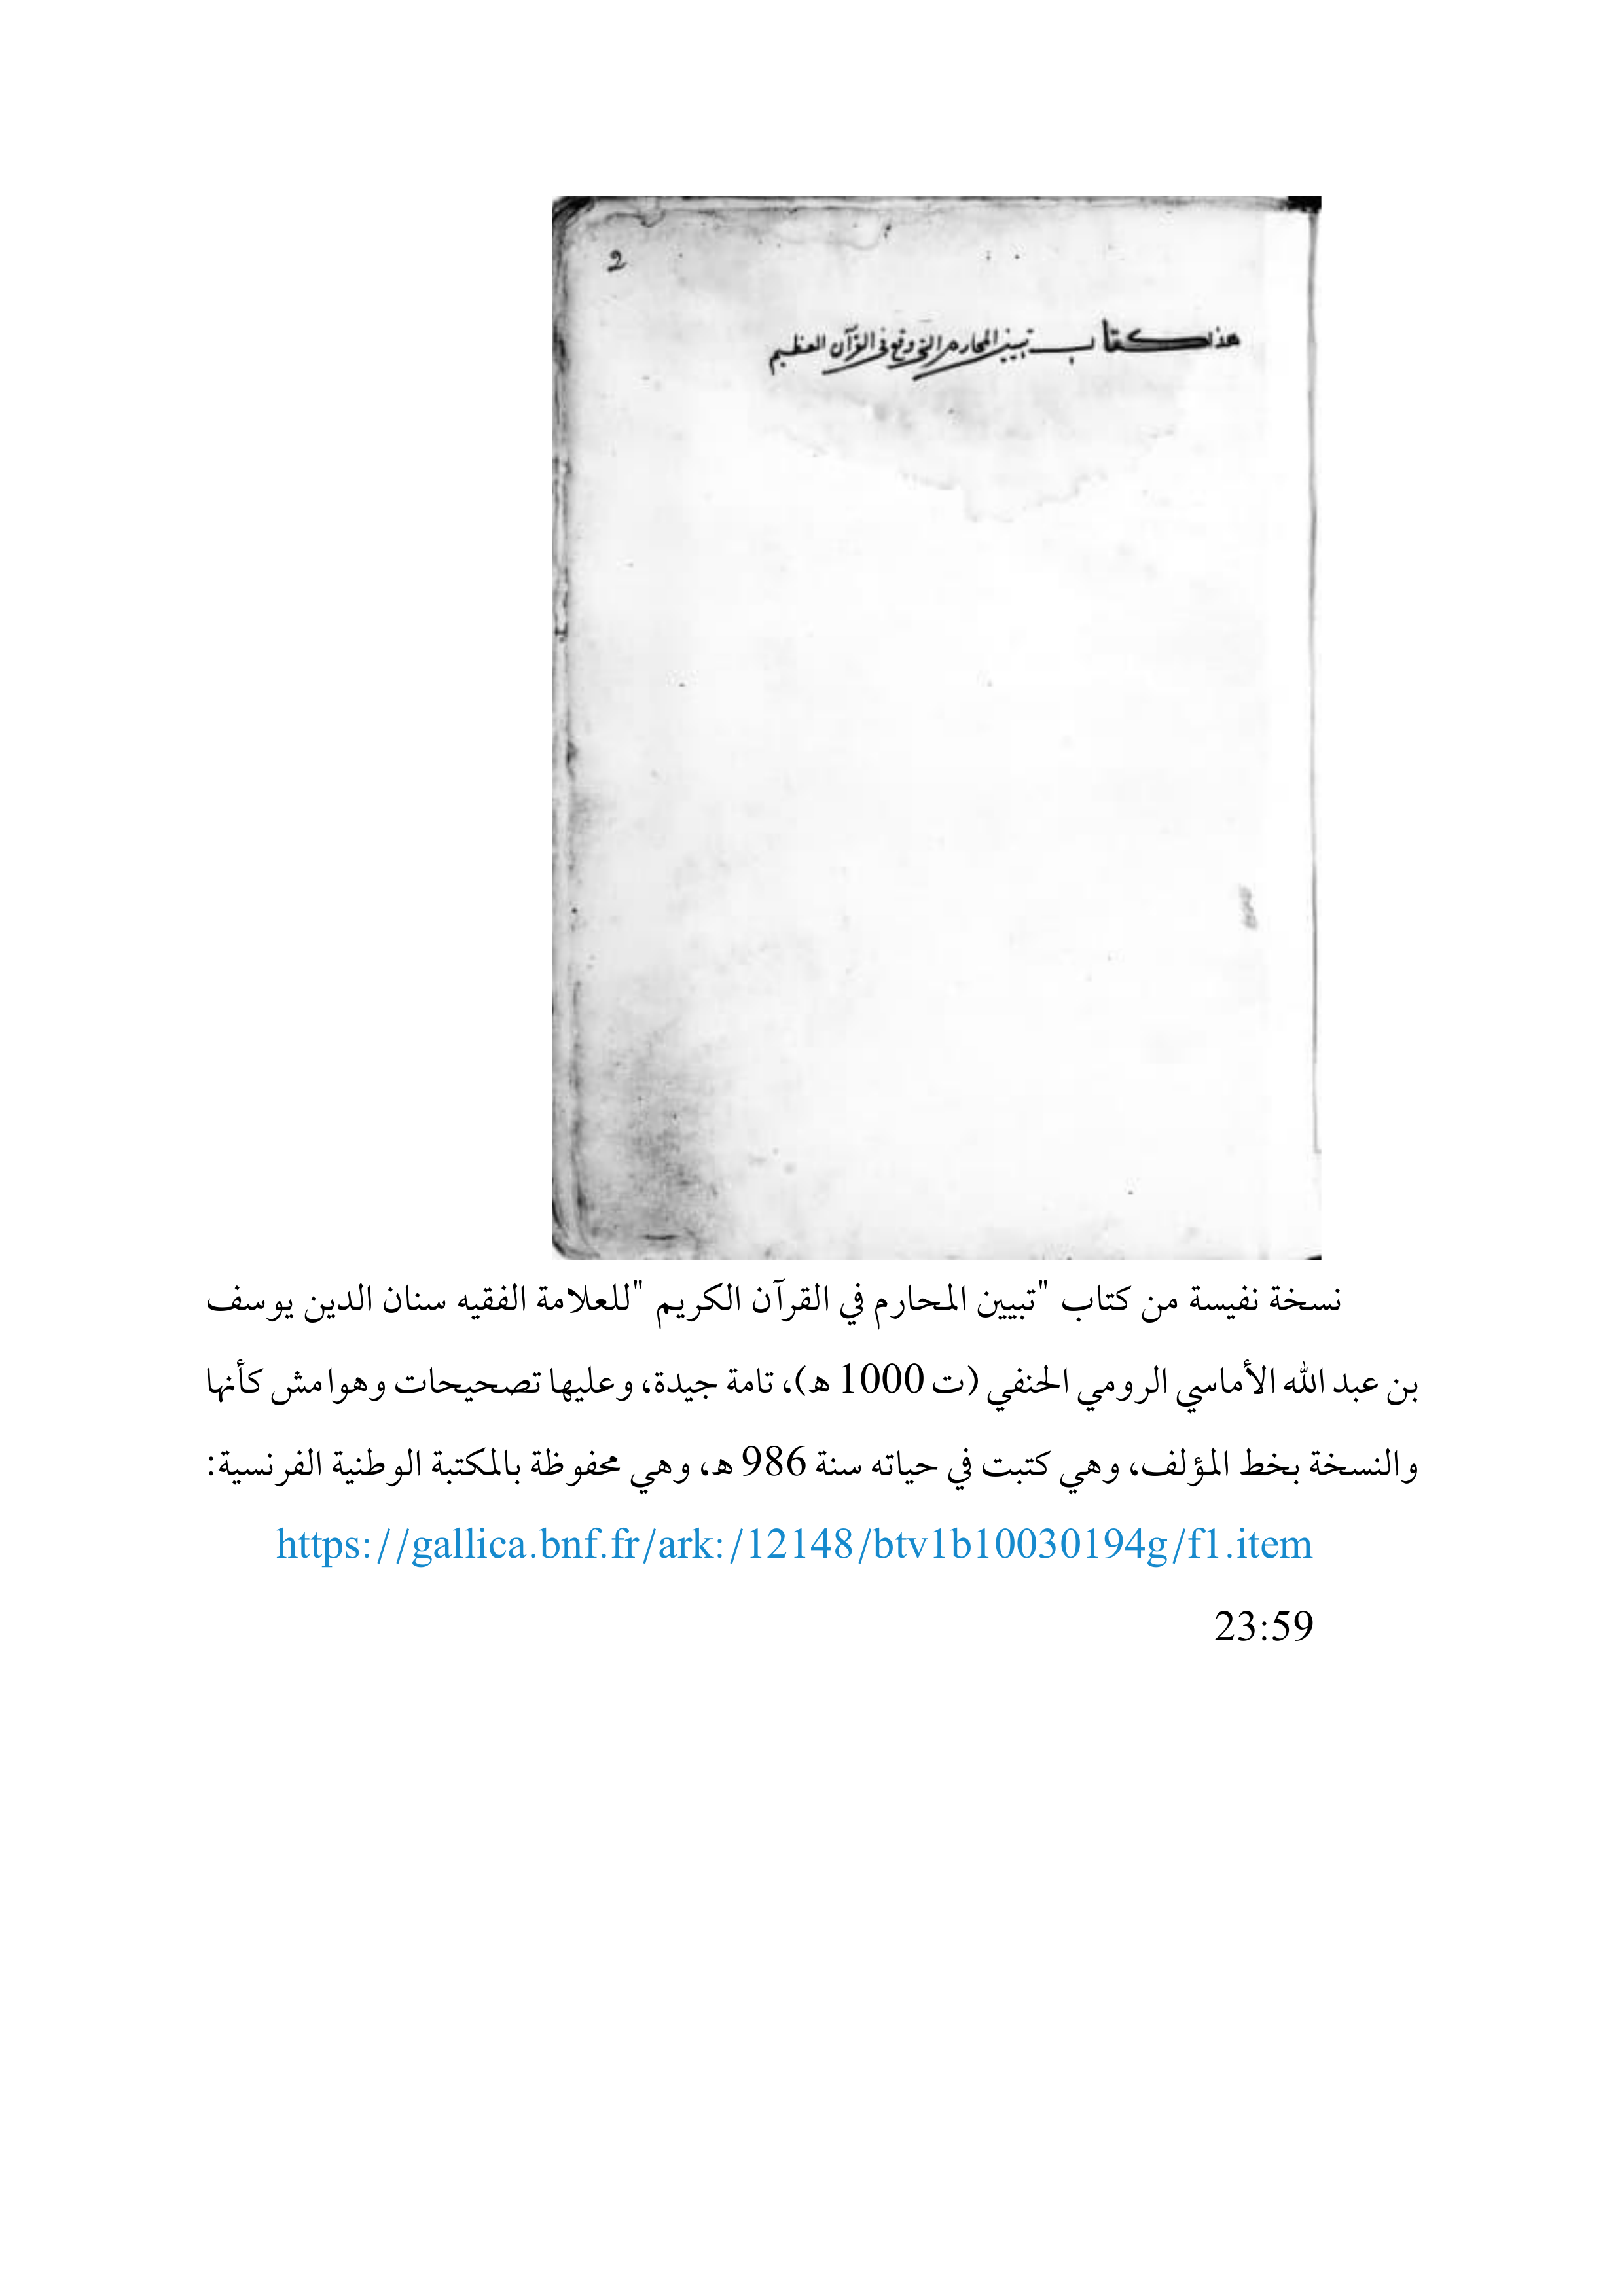 2
هذا كتاب تبيين المحارم التى وقع فى القرآن العظيم
نسخة نفيسة من كتاب "تبيين المحارم في القرآن الكريم "للعلامة الفقيه سنان الدين يوسف
بن عبد الله الأماسي الرومي الحنفي (ت 1000 هـ)، تامة جيدة، وعليها تصحيحات وهوامش كأنها
والنسخة بخط المؤلف، وهي كتبت في حياته سنة 986 هـ، وهي محفوظة بالمكتبة الوطنية الفرنسية:
https://gallica.bnf.fr/ark:/12148/btv1b10030194g/f1.item
23:59